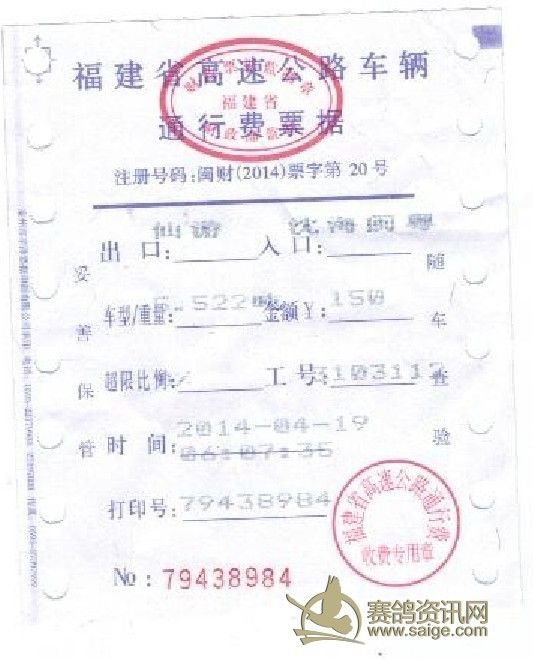 福建省高速公路车辆
福建省
通行费票据
注册号码:闽财(2014)票字第 20 号
出 口: 仙游 入 口:
车型/重量: 522 金额¥: 150
超限比例: / 工 号: 103112
时 间: 2014-04-19
06:07:35
打印号: 79438984
№: 79438984
妥善保管
随车查验
福建省高速公路通行费
收费专用章
赛鸽资讯网
www.saige.com